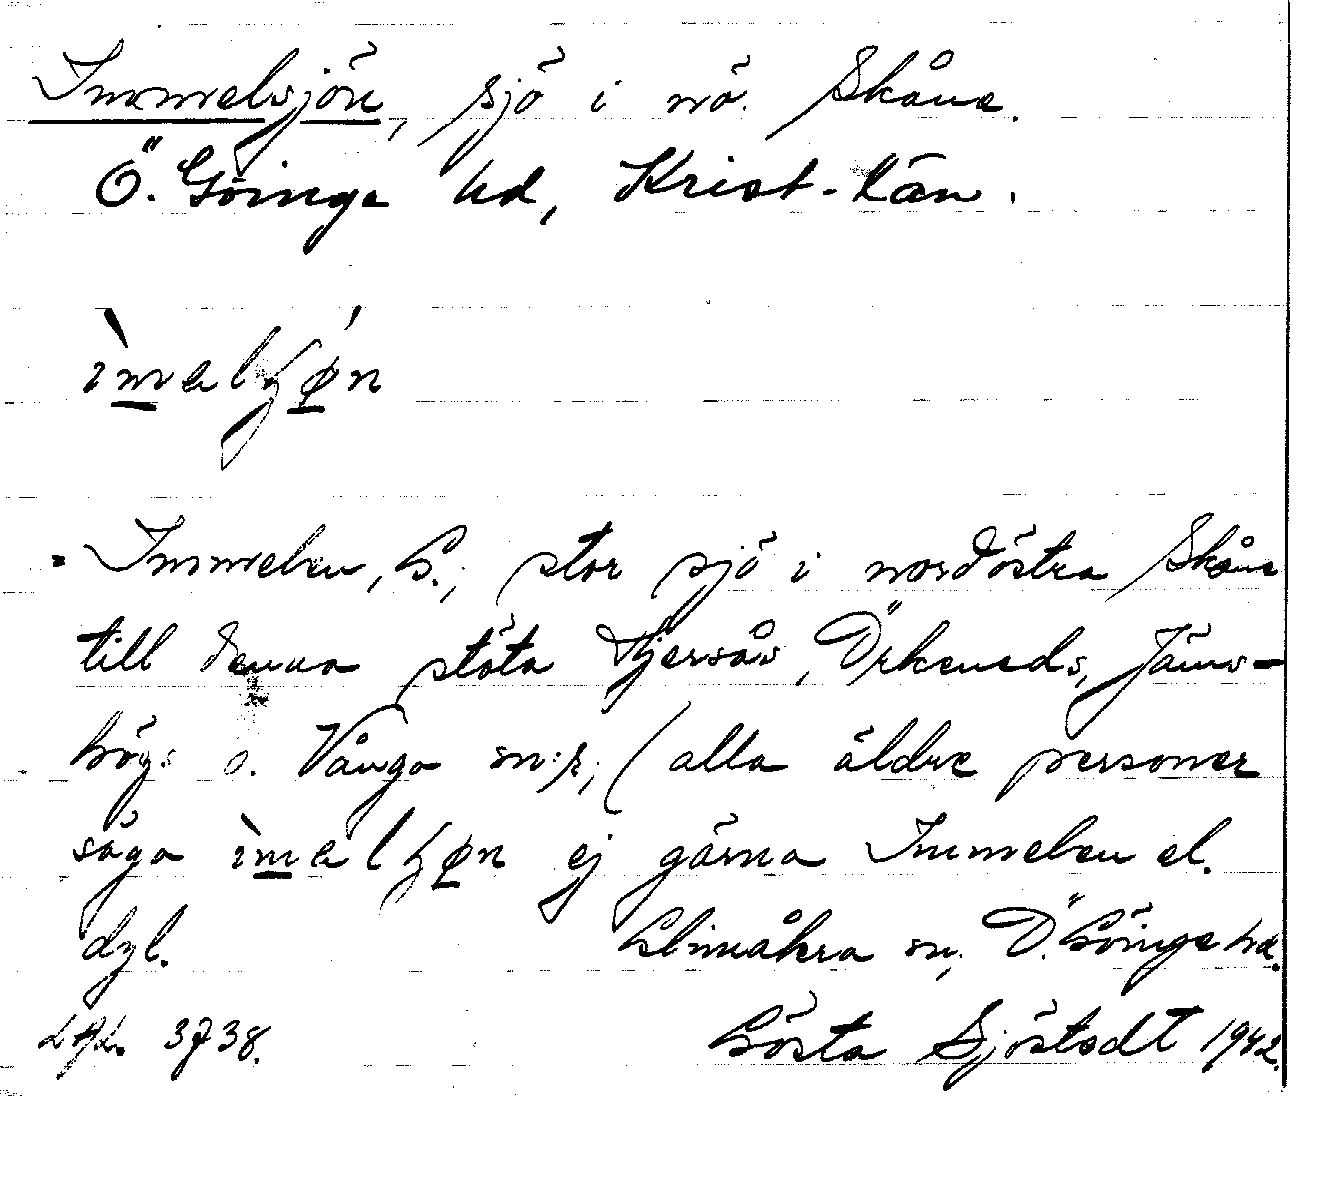 Immelsjön, sjö i nö. Skåne.
Ö. Göinge hd, Krist-län.
ìmelʒǿn
= Immelen, G.; stor sjö i nordöstra Skåne
till denna stöta Hjersås, Örkeneds, Jäms-
högs o. Vånga sn:r; (alla äldre personer
säga ìmelʒøn ej gärna Immelen el.
dyl. Glimåkra sn, Ö. Göinge hd.
3738. Gösta Sjöstedt 1942.